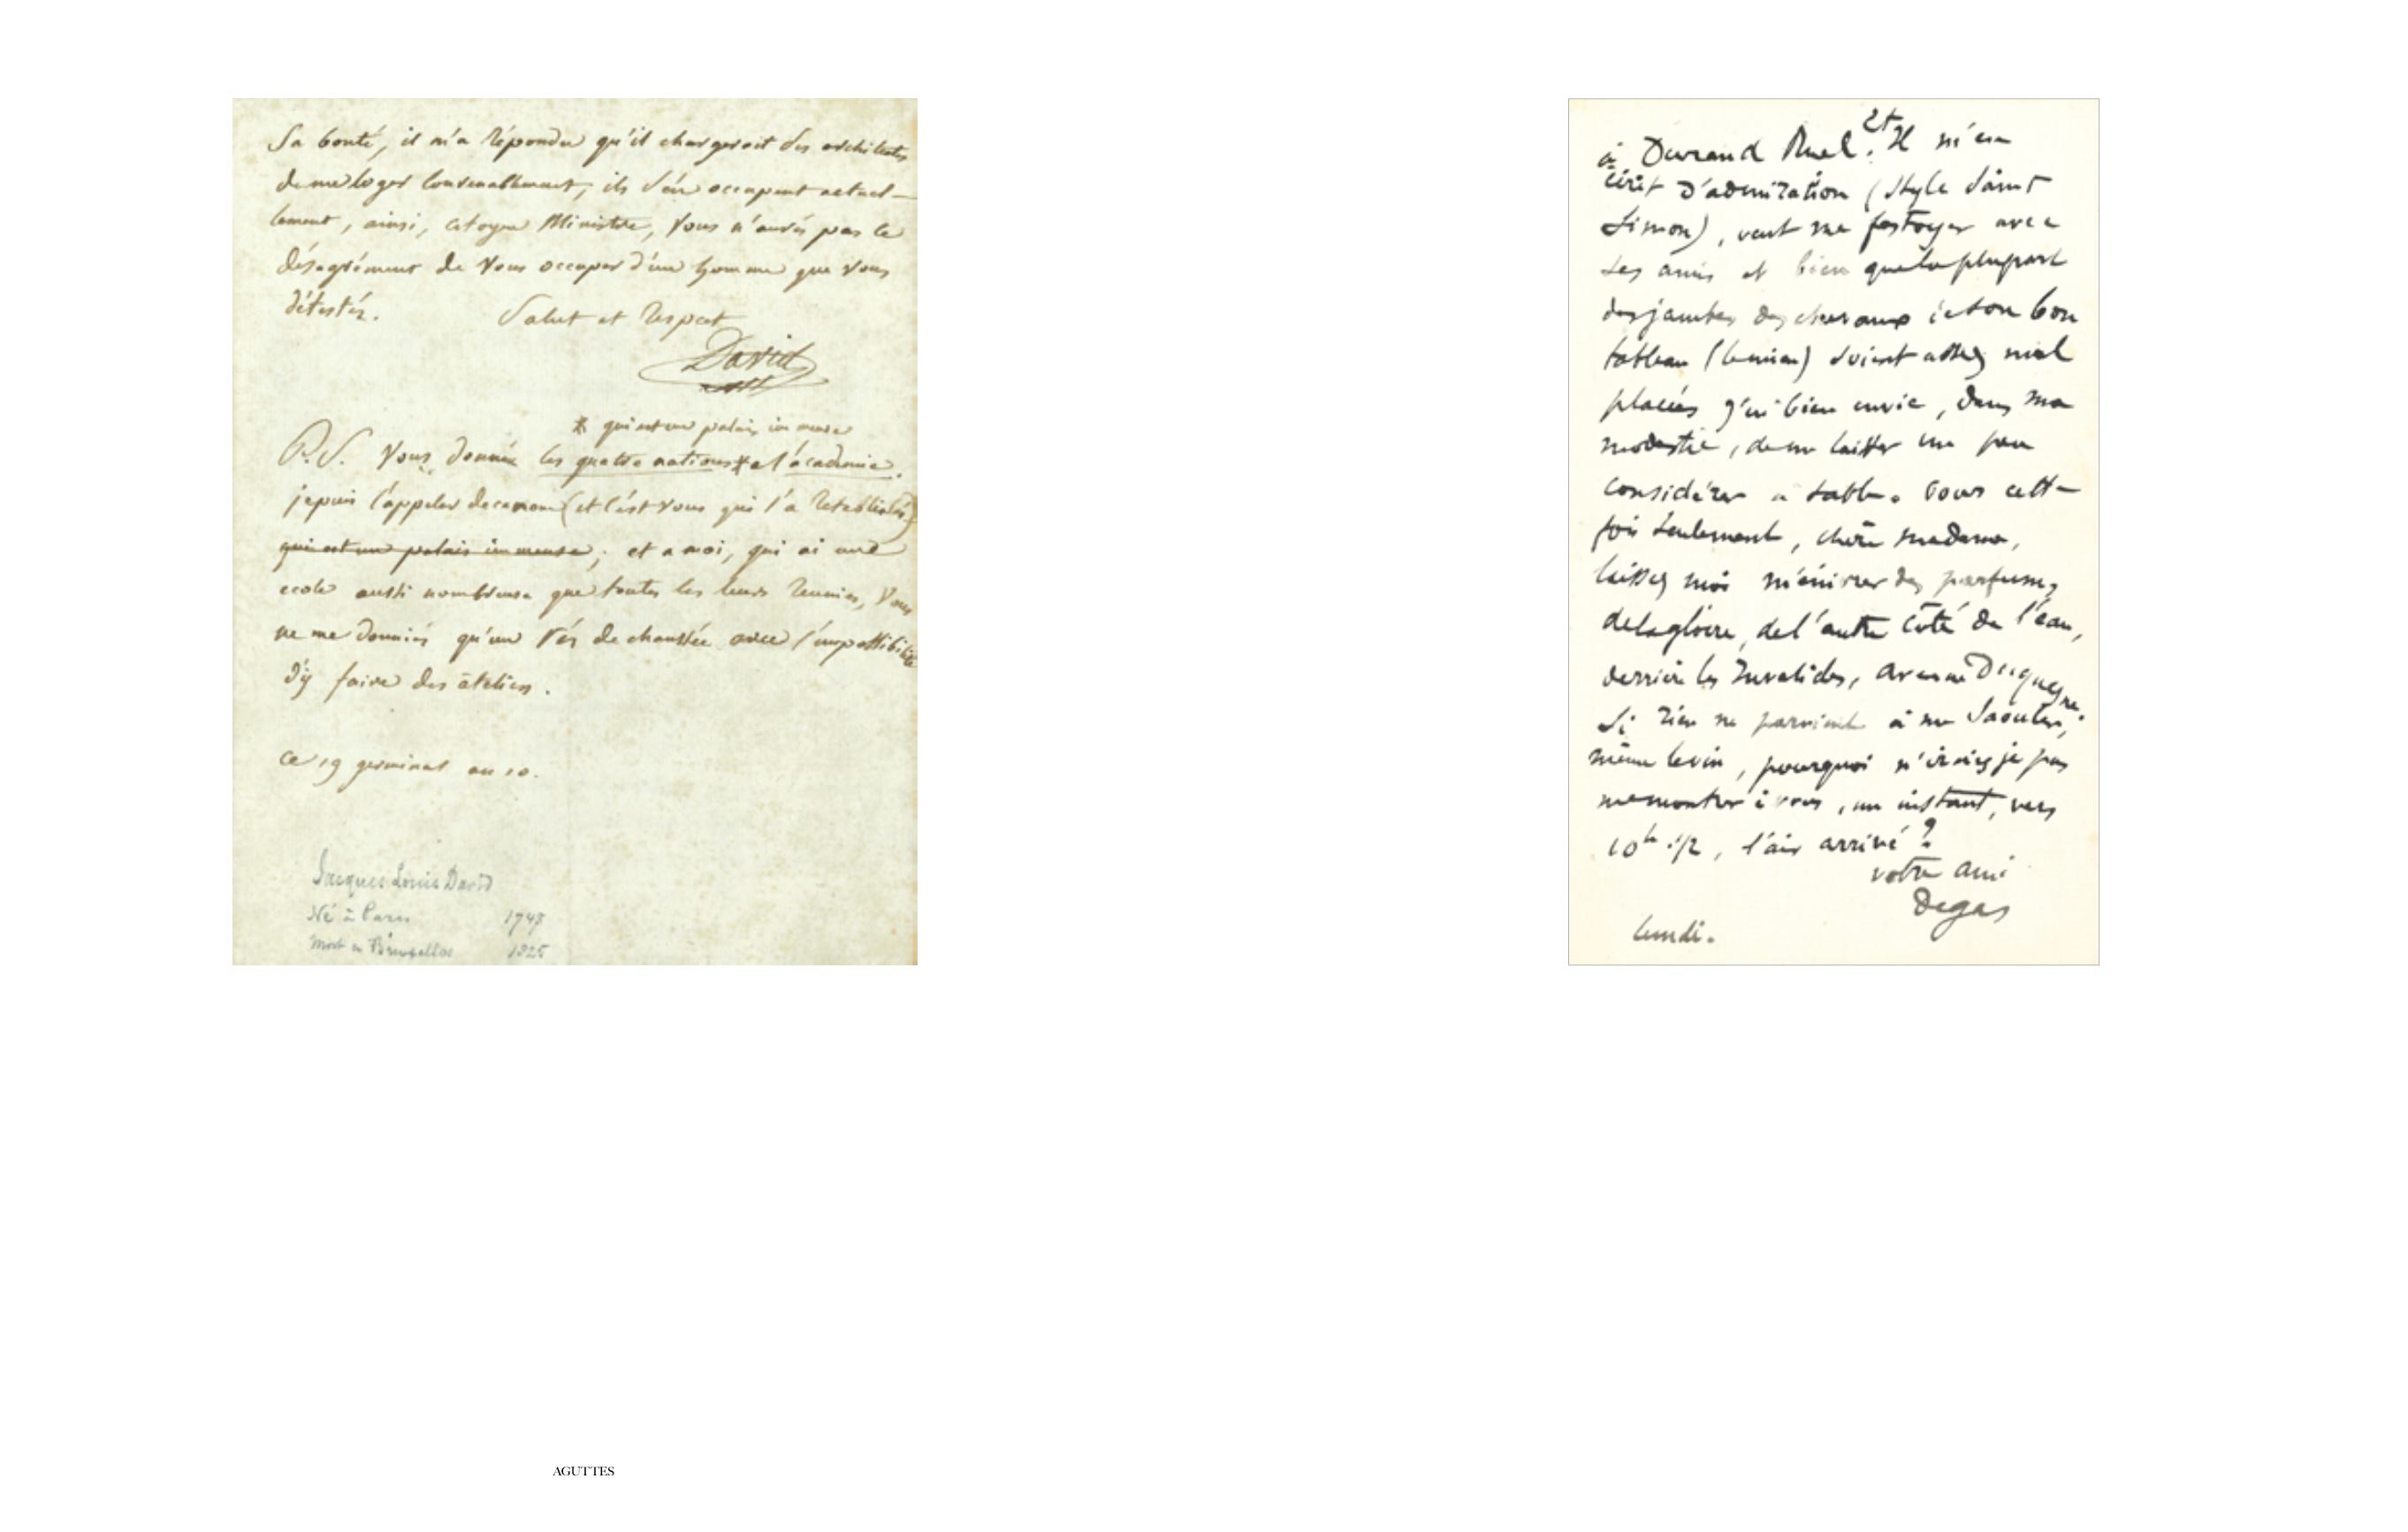 Sa bonté, il m'a répondu qu'il chargeroit des architectes
de me loger convenablement, ils s'en occupent actuel-
lement, ainsi, citoyen Ministre, vous n'aurés pas le
désagrément de vous occuper d'un homme que vous
détestés.
Salut et respect
David
* qui est un palais immense
P.S. Vous donnés les quatre nations * a l'académie.
je puis l'appeler de ce nom (et c'est vous qui l'a retablie)
qui est un palais immense; et a moi, qui ai une
ecole aussi nombreuse que toutes les leurs reunies, vous
ne me donniés qu'un rés de chaussée avec l'impossibilité
d'y faire des atéliers.
ce 19 germinal an 10.
Jacques Louis David
Né à Paris 1748
Mort à Bruxelles 1825
à Durand Ruel. Et Il m'en
écrit d'admiration (Style Saint
Simon), veut me festoyer avec
ses amis et bien que la plupart
des jambes des chevaux de son bon
tableau (le mien) soient assez mal
placées j'ai bien envie, dans ma
modestie, de me laisser un peu
considérer à table. Pour cette
fois seulement, chère madame,
laissez moi m'énivrer des parfums
de la gloire, de l'autre côté de l'eau,
derrière les Invalides, avenue Duquesne.
Si rien ne parvient à me saouler,
même le vin, pourquoi n'irais je pas
me montrer à vous, un instant, vers
10h 1/2, l'air arrivé?
votre ami
Degas
lundi.
AGUTTES